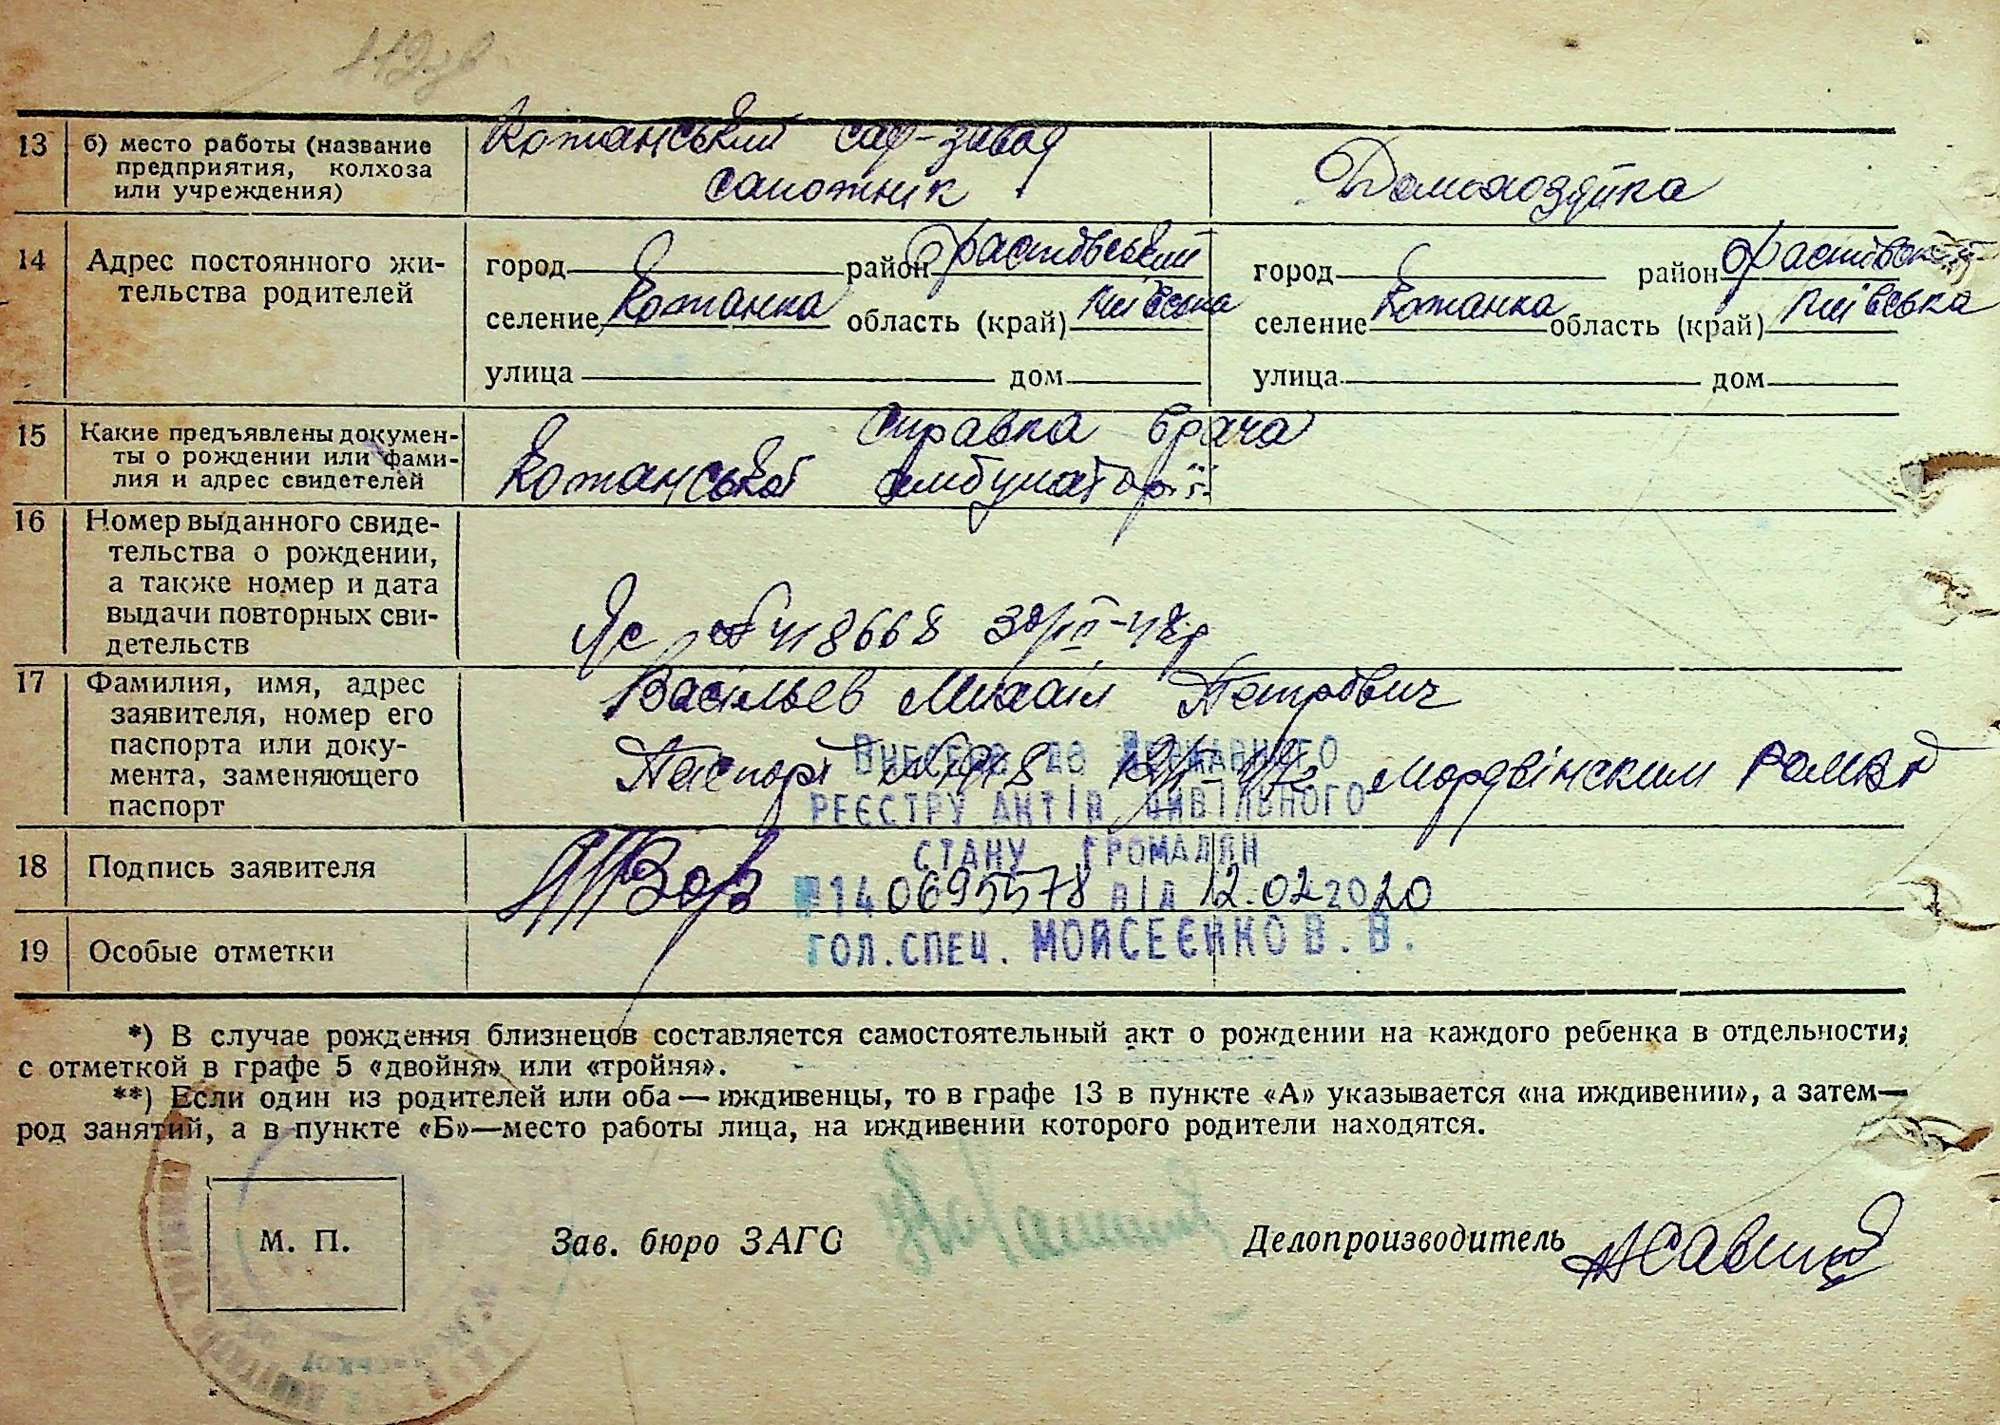 13 б) место работы (название предприятия, колхоза или учреждения)
Кожанський сах-завод
сапожник
Домохозяйка
14 Адрес постоянного жительства родителей
город район Фастівський
селение Кожанка область (край) Київська
улица дом
город район Фастівський
селение Кожанка область (край) Київська
улица дом
15 Какие предъявлены документы о рождении или фамилия и адрес свидетелей
справка врача
Кожанської амбулаторії
16 Номер выданного свидетельства о рождении, а также номер и дата выдачи повторных свидетельств
№ 418668
17 Фамилия, имя, адрес заявителя, номер его паспорта или документа, заменяющего паспорт
Васільев Михаіл Петрович
Паспорт Мордвінским
ВНЕСЕНО ДО ДЕРЖАВНОГО
РЕЄСТРУ АКТІВ ЦИВІЛЬНОГО
СТАНУ ГРОМАДЯН
№140695578 ВІД 12.02 2020
ГОЛ.СПЕЦ. МОЙСЕЄНКО В. В.
18 Подпись заявителя
19 Особые отметки
*) В случае рождения близнецов составляется самостоятельный акт о рождении на каждого ребенка в отдельности,
с отметкой в графе 5 «двойня» или «тройня».
**) Если один из родителей или оба — иждивенцы, то в графе 13 в пункте «А» указывается «на иждивении», а затем—
род занятий, а в пункте «Б»—место работы лица, на иждивении которого родители находятся.
М. П.
Зав. бюро ЗАГС
Делопроизводитель